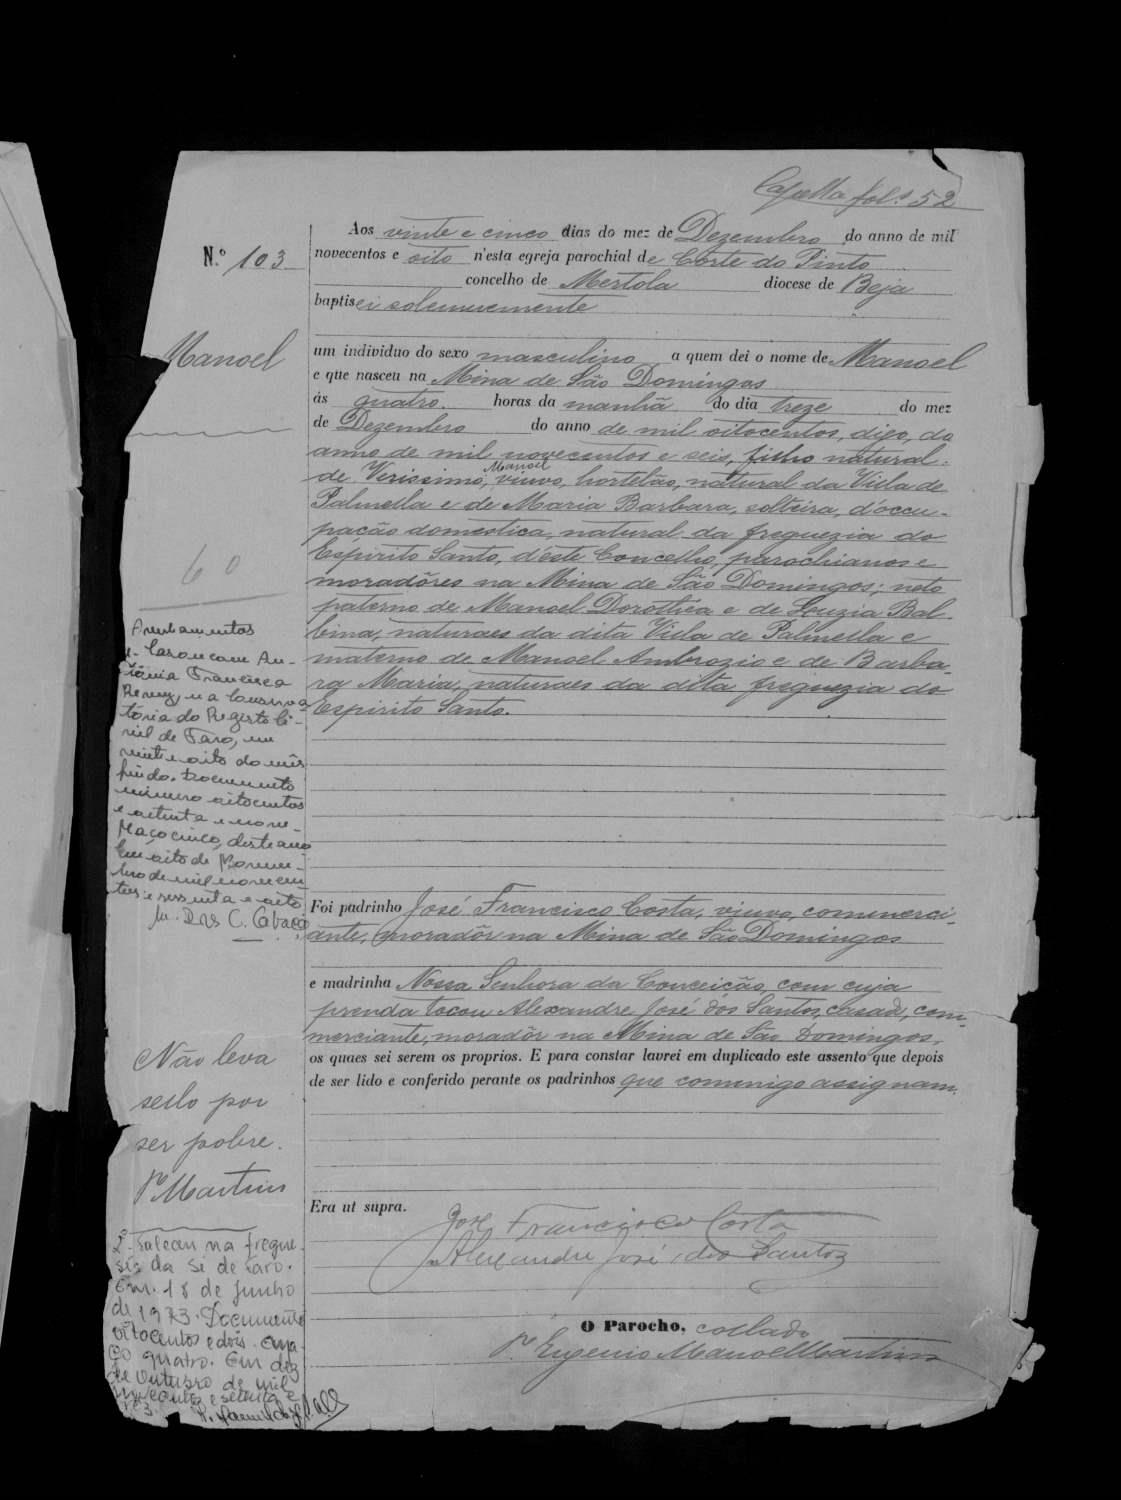 Capella fol.s 52
Aos vinte e cinco dias do mez de Dezembro do anno de mil
N.º 103
novecentos e oito n'esta egreja parochial de Corte do Pinto
concelho de Mertola diocese de Beja
baptisei solemnemente
Manoel
um individuo do sexo masculino a quem dei o nome de Manoel
e que nasceu na Mina de São Domingos
ás quatro horas da manhã do dia treze do mez
de Dezembro do anno de mil oitocentos, digo, do
anno de mil novecentos e seis, filho natural
de Verissimo Manoel, viuvo, hortelão, natural da Villa de
Palmella e de Maria Barbara, solteira, d'occu-
pação domestica, natural da freguezia do
Espirito Santo, d'este Concelho, parochianos e
moradôres na Mina de São Domingos; neto
paterno de Manoel Dorothêa e de Louzia Bal-
bina, naturaes da dita Villa de Palmella e
materno de Manoel Ambrozio e de Barba-
ra Maria, naturaes da dita freguezia do
Espirito Santo.
60
Averbamentos
1- Casou com An-
tónia Francisca
na Conserva
tória do Registo Ci-
vil de Faro, em
vinte e oito do mês
findo. Documento
número oitocentos
e setenta e nove
Maço cinco, deste ano
Em oito de Novem-
bro de mil novecen-
tos e sessenta e oito
C. Cabaço
Foi padrinho José Francisco Costa, viuvo, commerci-
ante, moradôr na Mina de São Domingos
e madrinha Nossa Senhora da Conceição, com cuja
prenda tocou Alexandre José dos Santos, casado, com-
merciante, moradôr na Mina de São Domingos,
os quaes sei serem os proprios. E para constar lavrei em duplicado este assento que depois
de ser lido e conferido perante os padrinhos que commigo assignam.
Não leva
sello por
ser pobre.
P.e Martins
Era ut supra.
José Francisco Costa
Alexandre José dos Santos
O Parocho, collado
P.e Eugenio Manoel Martins
2º- Faleceu na fregue-
sia da Sé de Faro.
Em 18 de Junho
de 1973. Documento
oitocentos e dois. Ma-
ço quatro. Em dez
de Outubro de mil
novecentos e setenta e
três.